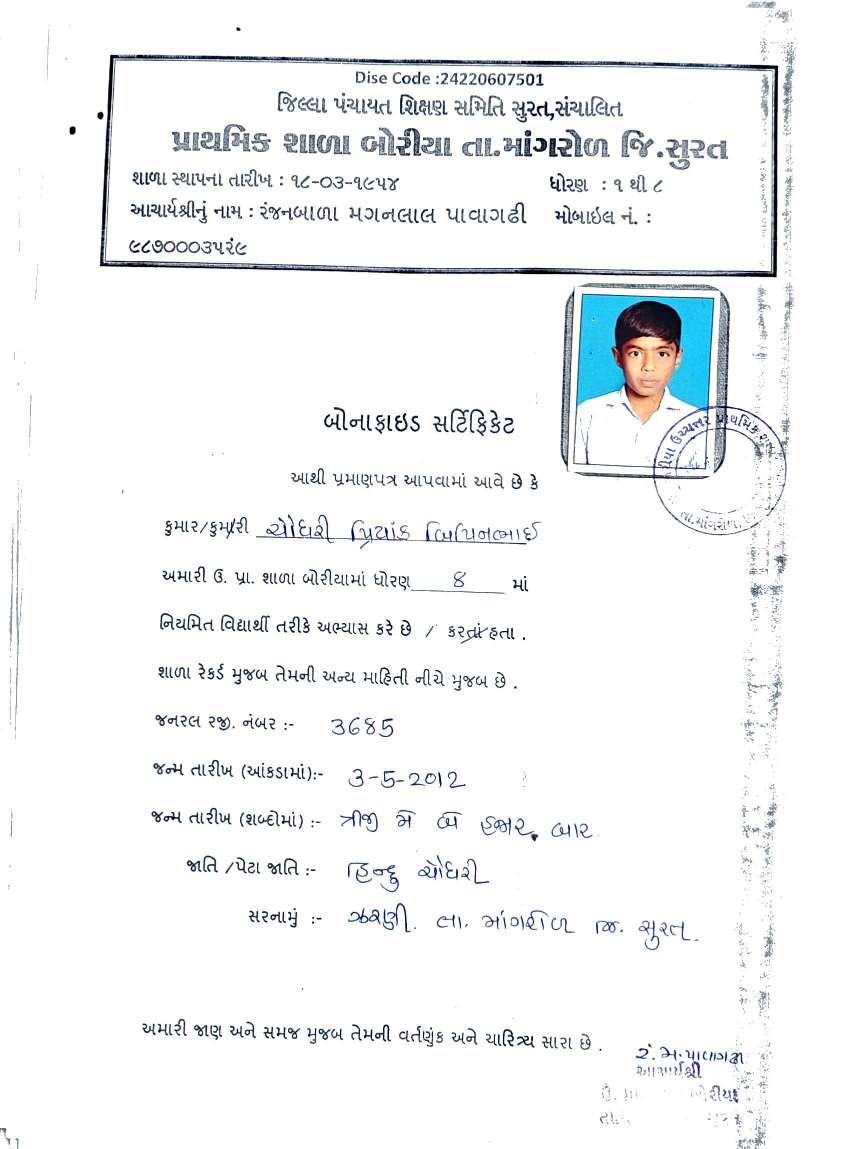 Dise Code :24220607501
જિલ્લા પંચાયત શિક્ષણ સમિતિ સુરત,સંચાલિત
પ્રાથમિક શાળા બોરીયા તા.માંગરોળ જિ.સુરત
શાળા સ્થાપના તારીખ : ૧૮-૦૩-૧૯૫૪ ધોરણ : ૧ થી ૮
આચાર્યશ્રીનું નામ : રંજનબાળા મગનલાલ પાવાગઢી મોબાઇલ નં. :
બોનાફાઇડ સર્ટિફિકેટ
આથી પ્રમાણપત્ર આપવામાં આવે છે કે
કુમાર/કુમારી ચૌધરી પ્રિયાંક બિપિનભાઈ
અમારી ઉ. પ્રા. શાળા બોરીયામાં ધોરણ 8 માં
નિયમિત વિદ્યાર્થી તરીકે અભ્યાસ કરે છે / કરતાં હતા .
શાળા રેકર્ડ મુજબ તેમની અન્ય માહિતી નીચે મુજબ છે .
જનરલ રજી. નંબર :- 3685
જન્મ તારીખ (આંકડામાં):- 3-5-2012
જન્મ તારીખ (શબ્દોમાં) :- ત્રીજી મે બે હજાર બાર
જાતિ /પેટા જાતિ :- હિન્દુ ચૌધરી
સરનામું :- ઝરણી. તા. માંગરોળ જિ. સુરત.
અમારી જાણ અને સમજ મુજબ તેમની વર્તણુંક અને ચારિત્ર્ય સારા છે .
ર. મ. પાવાગઢી
આચાર્યશ્રી